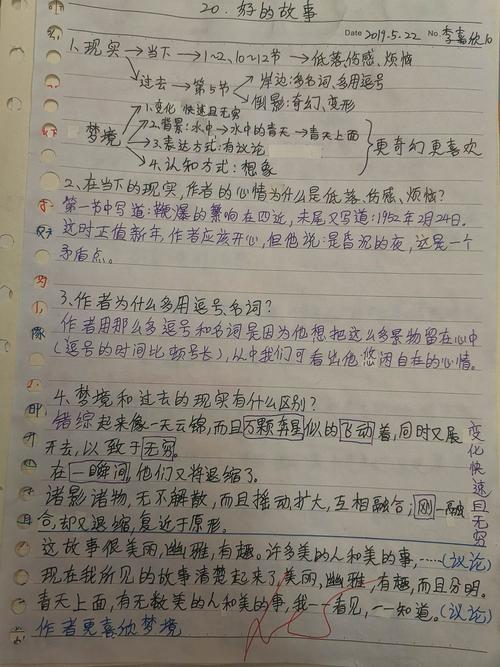 20.好的故事
Date 2019.5.22 No 李嘉欣10
1、现实→当下→1~2、10~12节→低落、伤感、烦恼
过去→第5节 岸边:多名词、多用逗号
倒影:奇幻、变形
梦境 1.变化 快速且无穷
2.背景:水中→水中的青天→青天上面
3.表达方式:有议论
4.认知方式:想象
更奇幻更喜欢
2、在当下的现实,作者的心情为什么是低落、伤感、烦恼?
第一节中写道:鞭爆的繁响在四近,末尾又写道:1952年2月24日。
这时正值新年,作者应该开心,但他说:是昏沉的夜,这是一个
矛盾点。
3、作者为什么多用逗号、名词?
作者用那么多逗号和名词是因为他想把这么多景物留在心中
(逗号的时间比顿号长),从中我们可看出他悠闲自在的心情。
4、梦境和过去的现实有什么区别?
错综起来像一天云锦,而且万颗奔星似的飞动着,同时又展
开去,以致于无穷。
在一瞬间,他们又将退缩了。
诸影诸物,无不解散,而且摇动,扩大,互相融合;刚一融
合,却又退缩,复近于原形。
变化快速且无穷
这故事很美丽,幽雅,有趣。许多美的人和美的事,……(议论)
现在我所见的故事清楚起来了,美丽,幽雅,有趣,而且分明。
青天上面,有无数美的人和美的事,我一一看见,一一知道。(议论)
作者更喜欣梦境